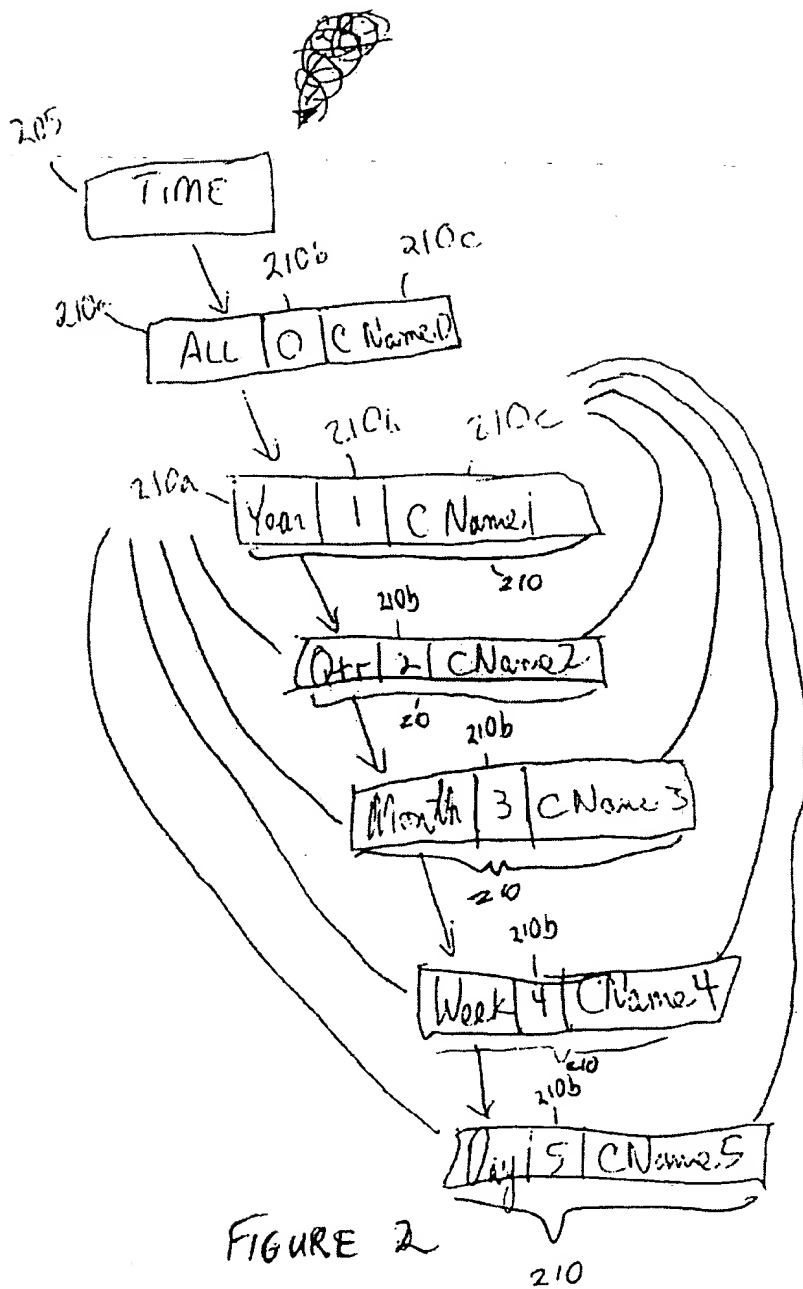 205
TIME
210b 210c
210a ALL 0 C Name.0
210b 210c
210a Year 1 C Name.1
210
210b
Qtr 2 CName2
20
210b
Month 3 CName.3
210
210b
Week 4 CName.4
210
210b
Day 5 CName.5
210
FIGURE 2